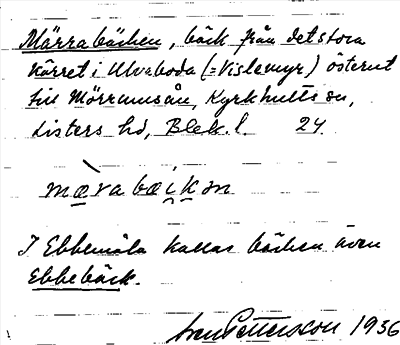 Märrabäcken, bäck från det stora
kärret i Ulvaboda (= Vislemyr) österut
till Mörrumsån, Kyrkhults sn,
Listers hd, Blek. l. 24
mæ̀rabæi̯kən
I Ebbemåla kallas bäcken även
Ebbebäck.
Sven Pettersson 1936